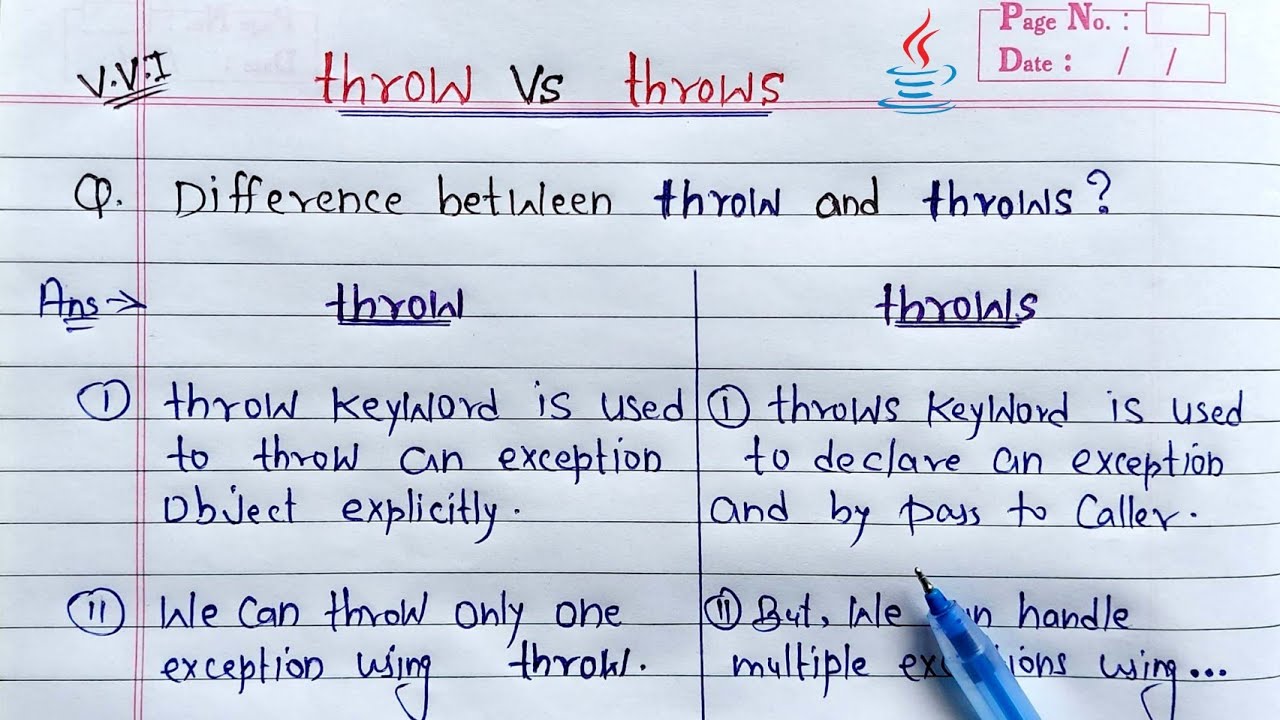 Page No. :
Date : / /
V.V.I
throw Vs throws
Q. Difference between throw and throws?
Ans →
throw
(I) throw keyword is used
to throw an exception
object explicitly.
(II) We can throw only one
exception using throw.
throws
(I) throws keyword is used
to declare an exception
and by pass to caller.
(II) But, We handle
multiple using...